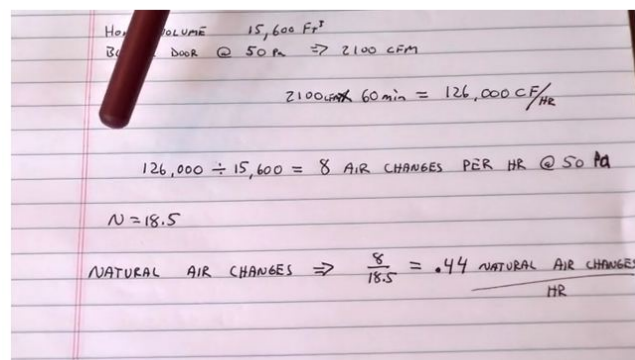 VOLUME 15,600 FT³
DOOR @ 50 Pa ⇒ 2100 CFM
2100 CFM X 60 min = 126,000 CF/HR
126,000 ÷ 15,600 = 8 AIR CHANGES PER HR @ 50 Pa
N = 18.5
NATURAL AIR CHANGES ⇒ 8/18.5 = .44 NATURAL AIR CHANGES/HR